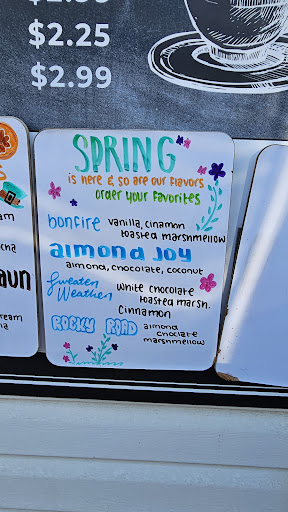 $2.25
$2.99
SPRING
is here & so are our flavors
order your favorites
bonfire vanilla, cinamon
toasted marshmellow
almond Joy
almond, chocolate, coconut
Sweater
Weather white chocolate
toasted marsh.
Cinnamon
ROCKY ROAD almond
choclate
marshmellow